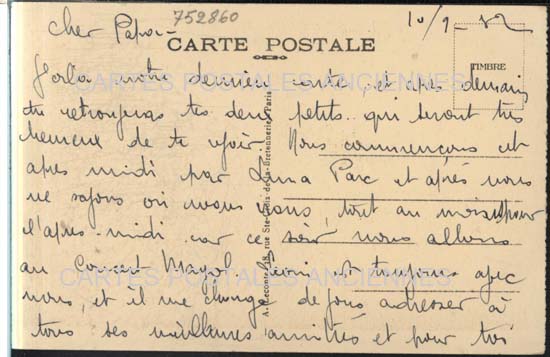 752860
10/9
cher Papa
CARTE POSTALE
TIMBRE
Voila notre dernière carte, et après demain
tu retrouveras tes deux petits qui seront très
heureux de te revoir. Nous commençons cet
après midi par Luna Parc et après nous
ne savons où nous irons, tout au moins pour
l'après-midi car ce soir nous allons
au Concert Mayol. est toujours avec
nous, et il me charge de vous adresser à
tous ses meilleures amitiés et pour toi
A. Leconte, 38, rue Ste-Croix-de-la-Bretonnerie, Paris
CARTES POSTALES ANCIENNES
CARTES POSTALES ANCIENNES